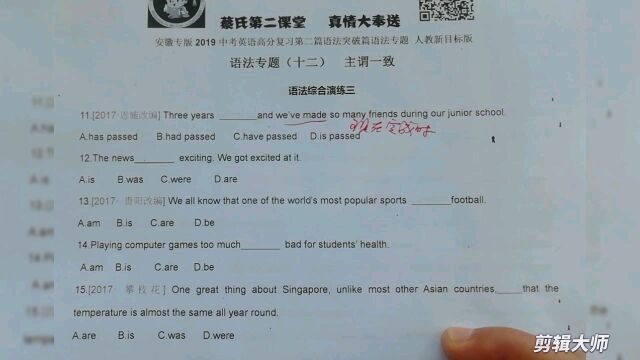 蔡氏第二课堂 真情大奉送
安徽专版 2019 中考英语高分复习第二篇语法突破篇语法专题 人教新目标版
语法专题（十二） 主谓一致
语法综合演练三
11.[2017·恩施改编] Three years ______and we've made so many friends during our junior school.
现在完成时
A.has passed B.had passed C.have passed D.is passed
12.The news______ exciting. We got excited at it.
A.is B.was C.were D.are
13.[2017·贵阳改编] We all know that one of the world's most popular sports ______football.
A.am B.is C.are D.be
14.Playing computer games too much______ bad for students' health.
A.am B.is C.are D.be
15.[2017·攀枝花] One great thing about Singapore, unlike most other Asian countries,____that the
temperature is almost the same all year round.
A.are B.is C.was D.were
剪辑大师